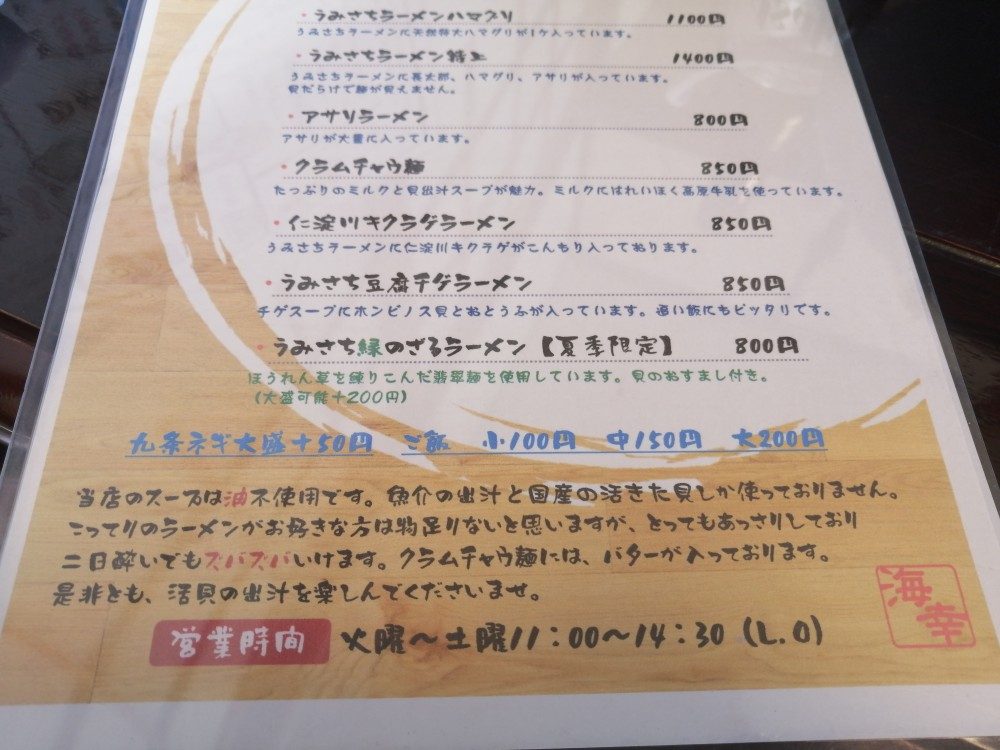 ・うみさちラーメンハマグリ 1100円
うみさちラーメンに天然特大ハマグリが1ケ入っています。
・うみさちラーメン特上 1400円
うみさちラーメンに長太郎、ハマグリ、アサリが入っています。
貝だらけで麺が見えません。
・アサリラーメン 800円
アサリが大量に入っています。
・クラムチャウ麺 850円
たっぷりのミルクと貝出汁スープが魅力。ミルクにはれいほく高原牛乳を使っています。
・仁淀川キクラゲラーメン 850円
うみさちラーメンに仁淀川キクラゲがこんもり入っております。
・うみさち豆腐チゲラーメン 850円
チゲスープにホンビノス貝とおとうふが入っています。追い飯にもピッタリです。
・うみさち緑のざるラーメン【夏季限定】 800円
ほうれん草を練りこんだ翡翠麺を使用しています。貝のおすまし付き。
(大盛可能+200円)
九条ネギ大盛+50円 ご飯 小100円 中150円 大200円
当店のスープは油不使用です。魚介の出汁と国産の活きた貝しか使っておりません。
こってりのラーメンがお好きな方は物足りないと思いますが、とってもあっさりしており
二日酔いでもズバズバいけます。クラムチャウ麺には、バターが入っております。
是非とも、活貝の出汁を楽しんでくださいませ。
海幸
営業時間 火曜~土曜11:00~14:30(L.O)